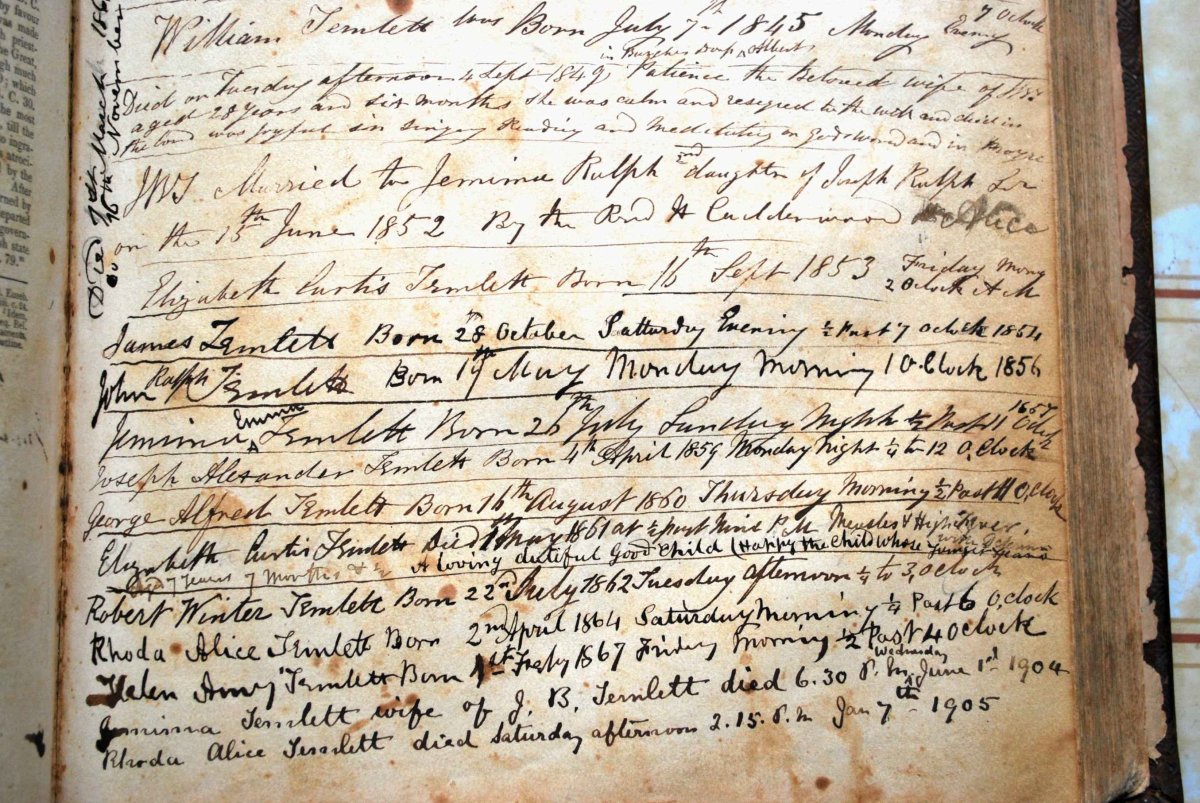 William Temlett was Born July 7th 1845 Monday Evening 7 Oclock
in Burghes Dorp Albert
Died on Tuesday afternoon 4 Sept 1849 Patience the Beloved wife of
aged 28 years and six months she was calm and resigned to the will and died in
the Lord was joyful in singing Reading and Meditating on Gods word and in
Married to Jemima Ralph 2nd daughter of Joseph Ralph
on the 15th June 1852 By the Revd H Calderwood Alice
Elizabeth Curtis Temlett Born 16th Sept 1853 Friday Morng
2 Oclock A M
James Temlett Born 28 October Satturday Evening ½ Past 7 Oclock 1854
John Ralph Temlett Born 19th May Monday Morning 1 O.Clock 1856
Jemima Emma Temlett Born 26th July Sunday Night ½ Past 11 Oclk 1857
Joseph Alexander Temlett Born 4th April 1859 Monday Night ¼ to 12 O,Clock
George Alfred Temlett Born 16th August 1860 Thursday Morning ½ Past O,Clock
Elizabeth Curtis Temlett Died May 1861 at ½ past Nine P.M Measles & High Fever,
7 Years 7 Months & A loving dutiful Good Child (Happy the Child whose Years
Robert Winter Temlett Born 22nd July 1862 Tuesday afternoon ¼ to 3, Oclock
Rhoda Alice Temlett Born 2nd April 1864 Saturday Morning ¼ Past 6 O,clock
Helen Amy Temlett Born 1st Feby 1867 Friday Morning ½ Past 4 Oclock
Jemima Temlett wife of J. B. Temlett died 6.30 P.M Wednesday June 1st 1904
Rhoda Alice Temlett died Saturday afternoon 2.15. P.M Jan 7th 1905
Died 7th March 186
16th November